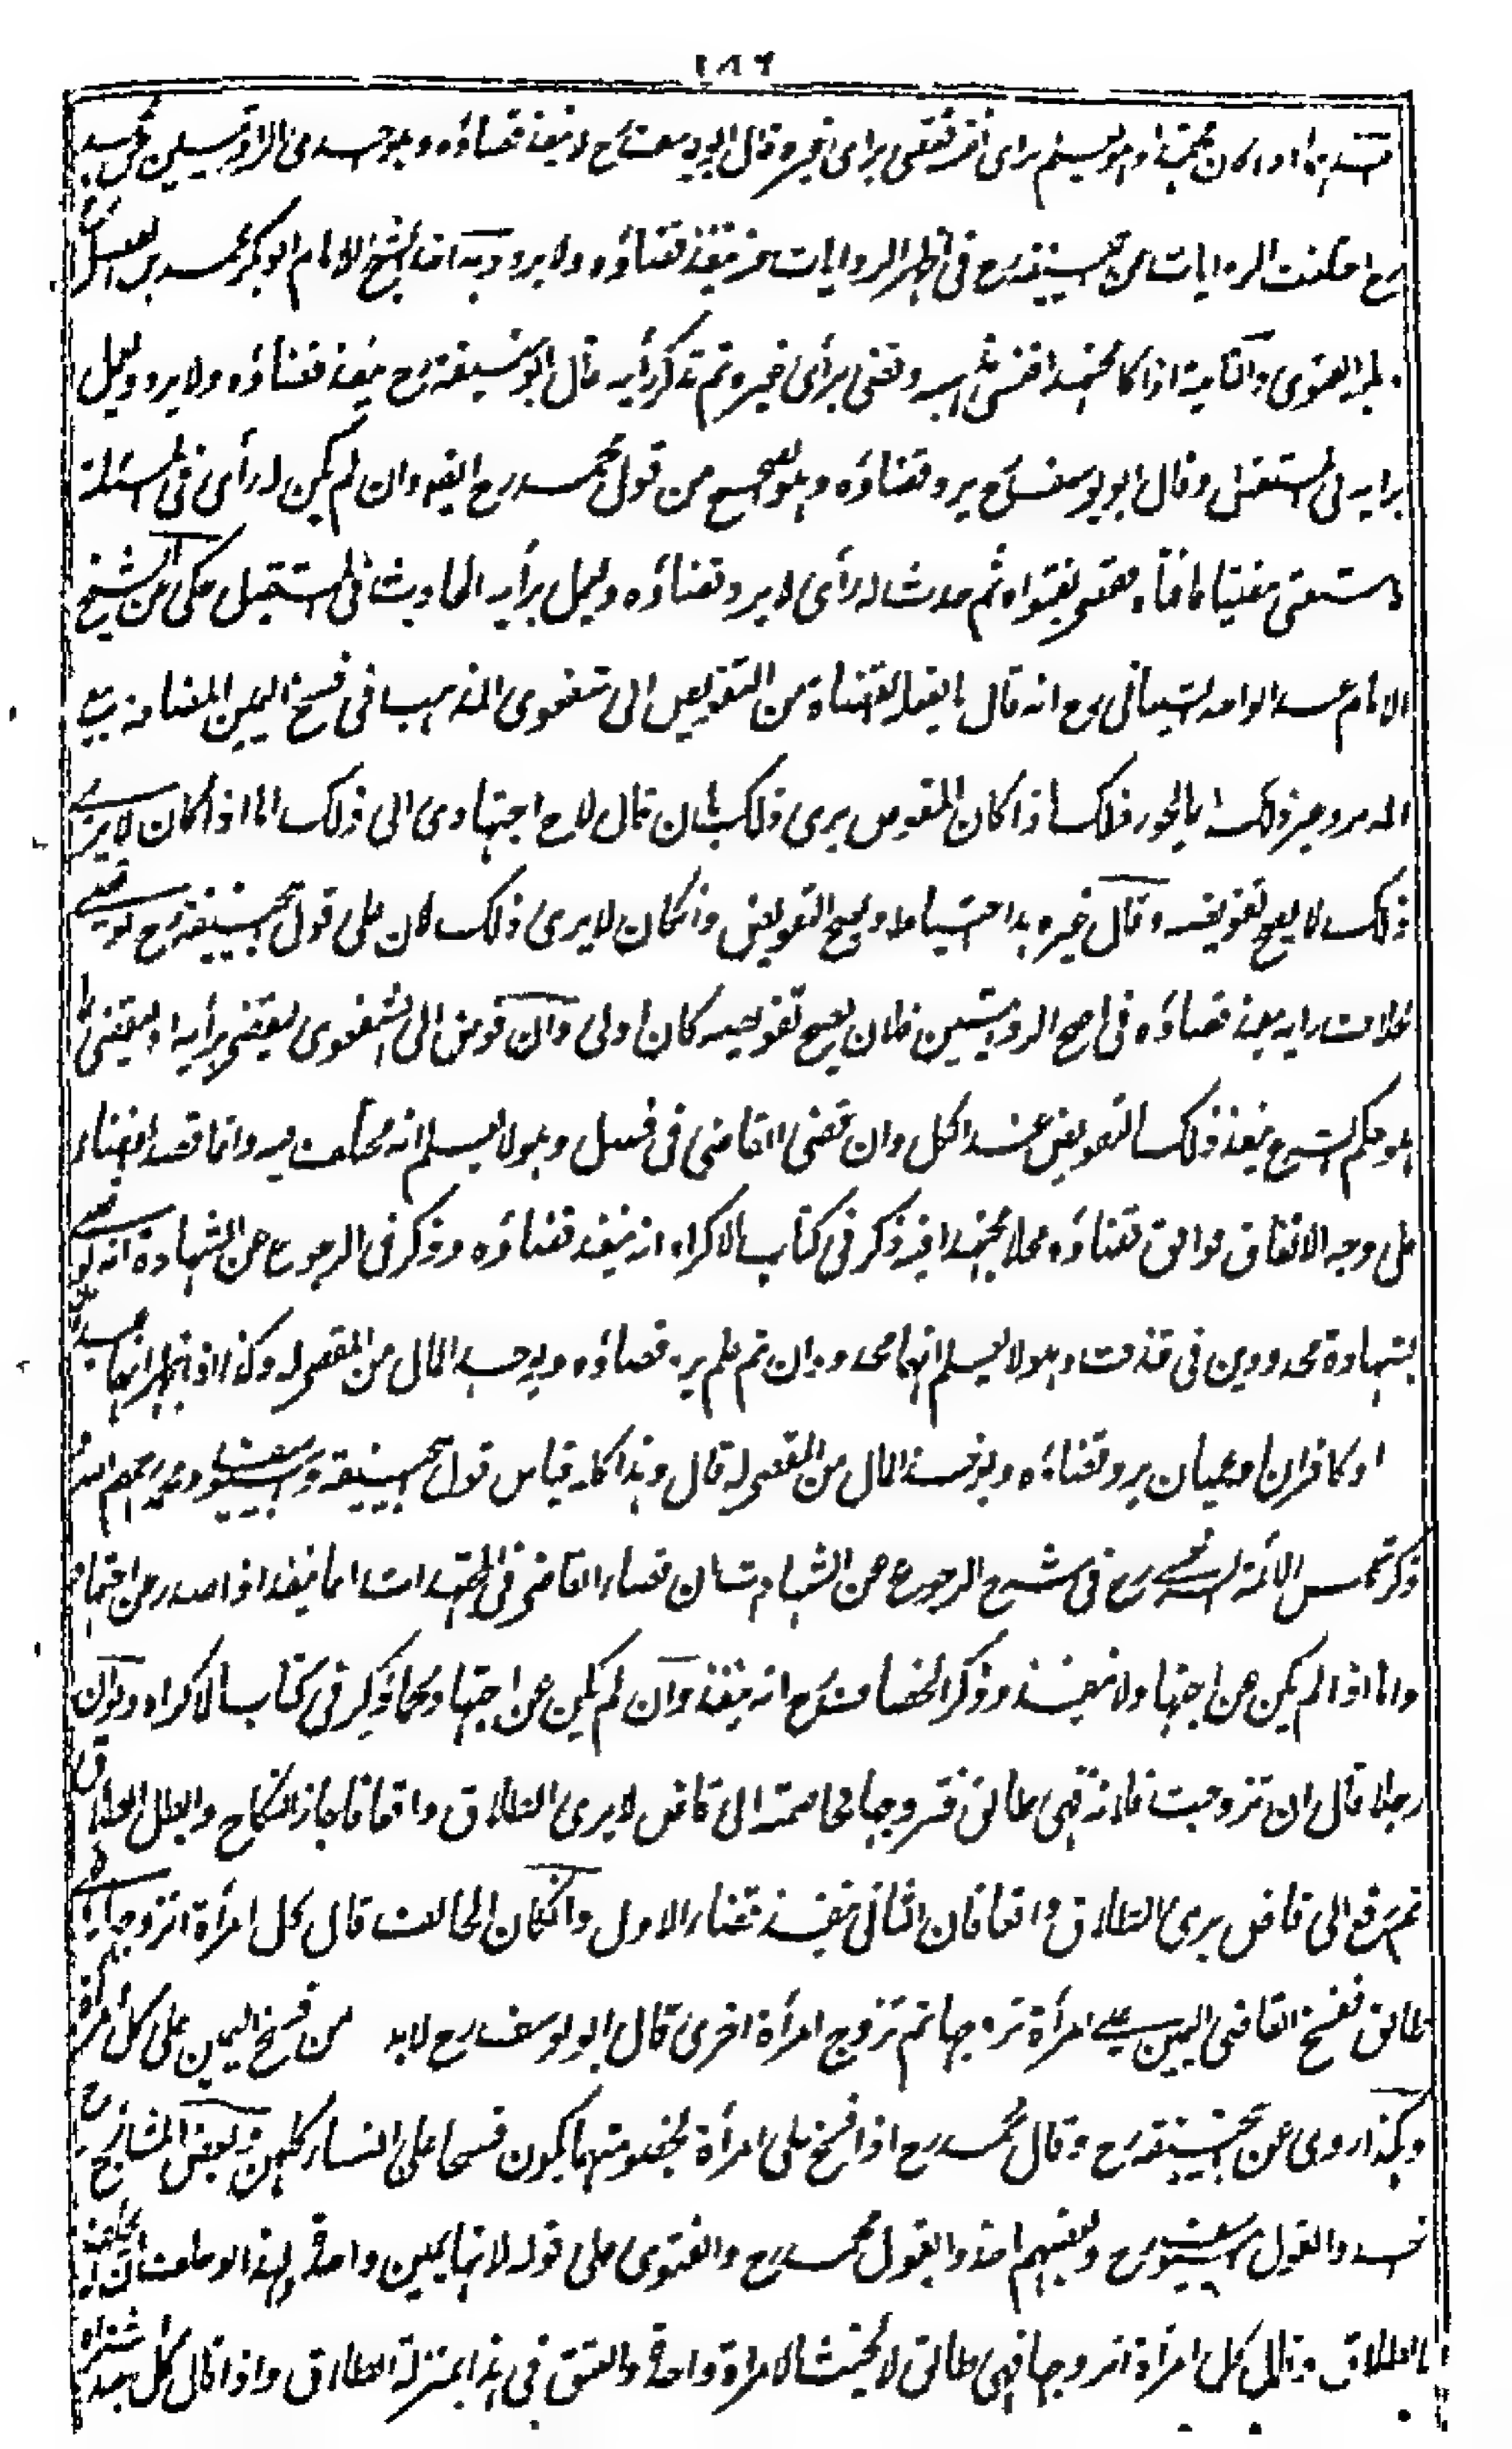 ١٨٦
وهو يعلم برأى نفسه فقضى برأى غيره قال ابو يوسف رح لا ينفذ قضاؤه وهو احدى الروايتين عن محمد
رح اختلفت الروايات عن ابيحنيفة رح فى اظهر الروايات عنه ينفذ قضاؤه ولا يرد وبه اخذ الشيخ الامام ابو بكر محمد بن الفضل
الفتوى والثانية اذا كان مجتهدا فنسى مذهبه وقضى برأى غيره ثم تذكر رأيه قال ابو حنيفة رح ينفذ قضاؤه ولا يرد ويعمل
برايه فى المستقبل وقال ابو يوسف رح يرد قضاؤه وهو الصحيح من قول محمد رح ايضا وان لم يكن له رأى فى المسئلة
فاستفتى مفتيا فافتاه فقضى بفتواه ثم حدث له رأى لا يرد قضاؤه ويعمل برأيه الحادث فى المستقبل حكى عن الشيخ
الامام عبد الواحد الشيبانى رح انه قال ما يفعله القضاة من التفويض الى شفعوى المذهب فى فسخ اليمين المضافة وبيع
المدبر وغير ذلك انما يجوز ذلك اذا كان المفوض يرى ذلك بان قال لاح اجتهادى الى ذلك اما اذا كان لا يرى
ذلك لا يصح تفويضه وقال غيره هذا احتياط ويصح التفويض وان كان لا يرى ذلك لان على قول ابيحنيفة رح لو قضى
بخلاف رايه ينفذ قضاؤه فى اصح الروايتين فلان يصح تفويضه كان اولى وان فوض الى الشفعوى ليقضى برأيه او ليقضى بما
هو حكم الشرع ينفذ ذلك التفويض عند الكل وان قضى القاضى فى فصل وهو لا يعلم انه مختلف فيه وانما قصد القضاء
على وجه الاتفاق فوافق قضاؤه محلا مجتهدا فيه ذكر فى كتاب الاكراه انه ينفذ قضاؤه وذكر فى الرجوع عن الشهادة انه لو قضى
بشهادة محدودين فى قذف وهو لا يعلم انهما محدودان ثم علم يرد قضاؤه ويوخذ المال من المقضى له وكذا اذا ظهر انهما عبدان
او كافران اعميان يرد قضاؤه ويوخذ المال من المقضى له قال وهذا كله قياس قول ابيحنيفة وابيوسف ومحمد رحمهم الله
ذكر شمس الائمة السرخسى رح فى شرح الرجوع عن الشهادات ان قضاء القاضى فى المجتهدات انما ينفذ اذا صدر عن اجتهاد
واما اذا لم يكن عن اجتهاد لا ينفذ وذكر الخصاف رح انه ينفذ وان لم يكن عن اجتهاد كما ذكر فى كتاب الاكراه ولو ان
رجلا قال ان تزوجت فلانة فهى طالق فتزوجها فخاصمته الى قاض لا يرى الطلاق واقعا فاجاز النكاح وابطل الطلاق
ثم رفع الى قاض يرى الطلاق واقعا فان الثانى ينفذ قضاء الاول وان كان الحالف قال كل امرأة اتزوجها فهى
طالق ففسخ القاضى اليمين على امرأة تزوجها ثم تزوج امرأة اخرى قال ابو يوسف رح لابد من فسخ اليمين على كل امرأة
وهكذا روى عن ابيحنيفة رح وقال محمد رح اذا فسخ على امرأة بخصومتها يكون فسخا على النساء كلهن وبعض المشايخ رح
اخذوا بقول ابيوسف رح وبعضهم اخذوا بقول محمد رح والفتوى على قوله لانها يمين واحدة ولهذا لو حلف ان لا يحلف
بالطلاق وقال كل امرأة اتزوجها فهى طالق لا يحنث الا مرة واحدة والعتق فى هذا بمنزلة الطلاق واذا قال كل عبد اشتراه